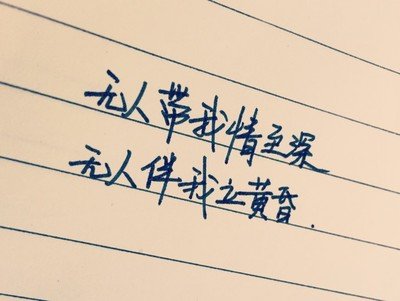 无人带我情至深
无人伴我立黄昏.